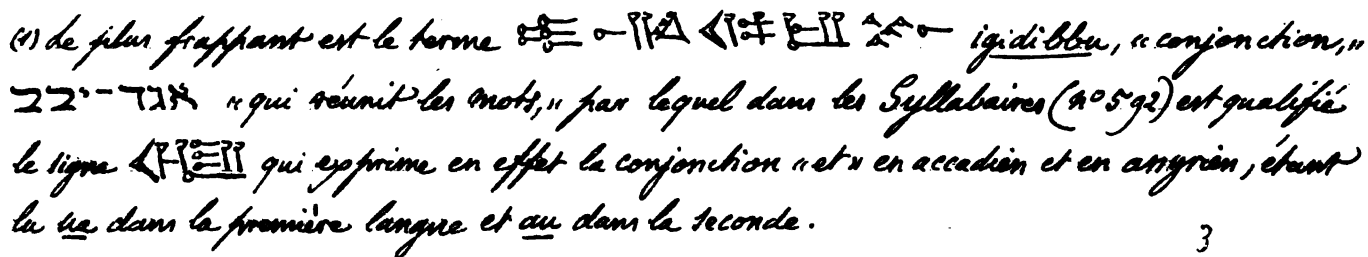 (1) Le plus frappant est le terme igidibbu, « conjonction, »
אגד־יבב « qui réunit les mots, » par lequel dans les Syllabaires (nº 592) est qualifié
le signe qui exprime en effet la conjonction « et » en accadien et en assyrien, étant
lu ua dans la première langue et au dans la seconde.
3